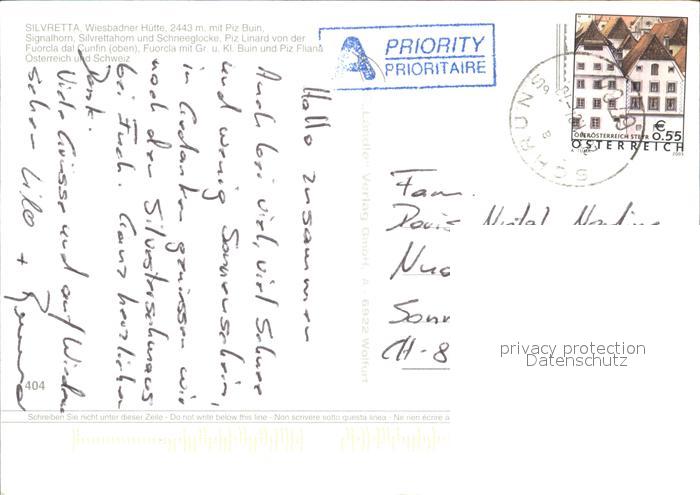 SILVRETTA, Wiesbadner Hütte, 2443 m, mit Piz Buin,
Signalhorn, Silvrettahorn und Schneeglocke, Piz Linard von der
Fuorcla dal Cunfin (oben), Fuorcla mit Gr. u. Kl. Buin und Piz Fliana
Österreich und Schweiz
A PRIORITY
PRIORITAIRE
SCHRUNS
€ 0.55
OBERÖSTERREICH STEYR
ÖSTERREICH
2003
Hallo zusammen
Auch bei viel, viel Schnee
und wenig Sonnenschein,
in Gedanken geniessen wir
noch den Silvesterschmaus
bei Euch. Ganz herzlichen
Dank.
Viele Grüsse und auf Wieder
sehen Lilo +
Verlag GmbH, A - 6922 Wolfurt
Fam.
CH-8
privacy protection
Datenschutz
404
Schreiben Sie nicht unter dieser Zeile - Do not write below this line - Non scrivere sotto questa linea - Ne rien écrire à